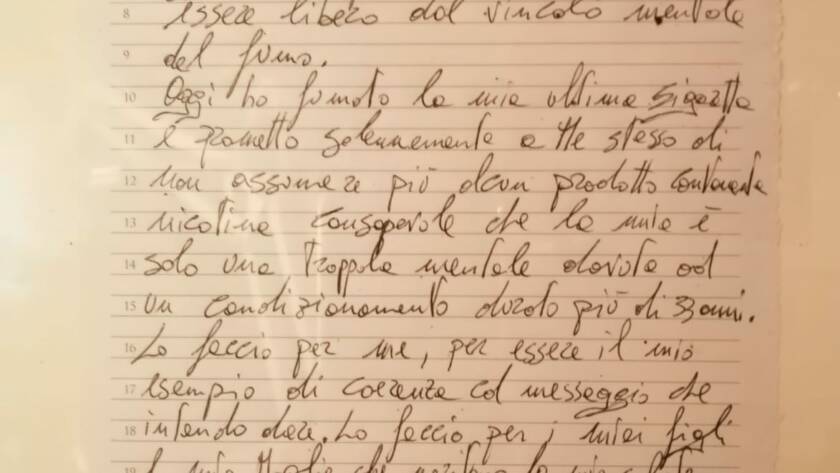 8 essere libero dal vincolo mentale
9 del fumo.
10 Oggi ho fumato la mia ultima sigaretta
11 e prometto solennemente a me stesso di
12 non assumere più alcun prodotto contenente
13 nicotina consapevole che la mia è
14 solo una trappola mentale dovuta ad
15 un condizionamento durato più di anni.
16 Lo faccio per me, per essere il mio
17 esempio di coerenza col messaggio che
18 intendo dare. Lo faccio per i miei figli
19 mia moglie che